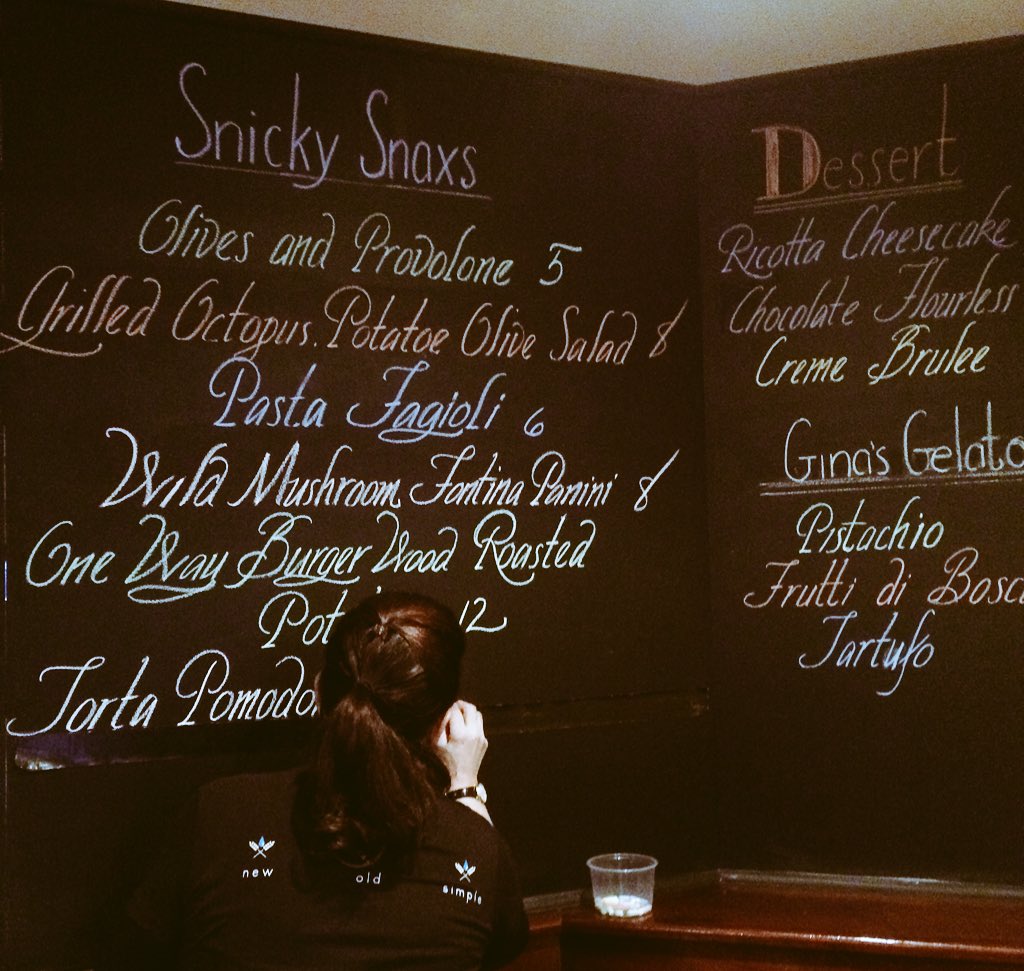 Snicky Snaxs
Olives and Provolone 5
Grilled Octopus. Potatoe Olive Salad 8
Pasta Fagioli 6
Wild Mushroom Fontina Panini 8
One Way Burger Wood Roasted
Pot 12
Torta Pomodo
Dessert
Ricotta Cheesecake
Chocolate Flourless
Creme Brulee
Gina's Gelato
Pistachio
Frutti di Bosc
Tartufo
new old simple